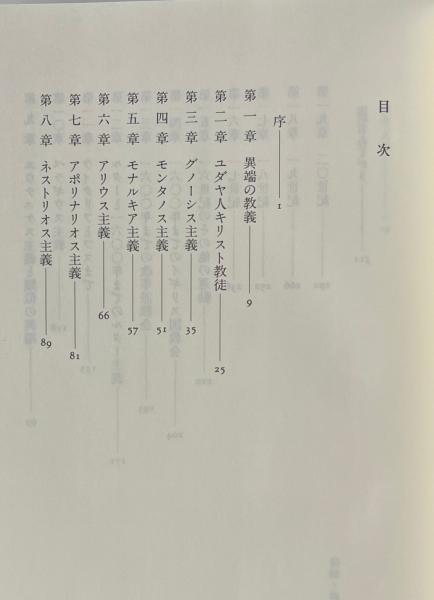 目次
序 1
第一章 異端の教義 9
第二章 ユダヤ人キリスト教徒 25
第三章 グノーシス主義 35
第四章 モンタノス主義 51
第五章 モナルキア主義 57
第六章 アリウス主義 66
第七章 アポリナリオス主義 81
第八章 ネストリオス主義 89